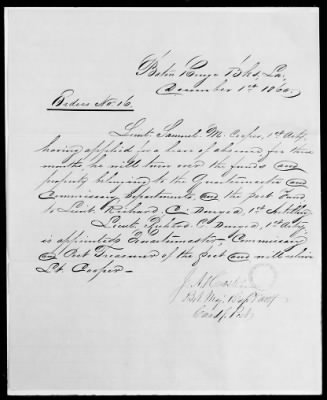 Baton Rouge Bks, La.
December 1st 1860.
Orders No 16.
Lieut. Samuel. M. Cooper, 1st Arty,
having applied for a leave of absence for three
months he will turn over the funds and
property belonging to the Quartermaster and
Commissary Departments, and the post Fund
to Lieut. Richard. C. Duryea, 1st Artillery.
Lieut. Richard C. Duryea, 1st Arty,
is appointed Quartermaster, Commissary
and Post Treasurer of the post and will relieve
Lt. Cooper—
J. A. Haskin
Bt. Maj. & Capt 1st Arty
Comdg. Post